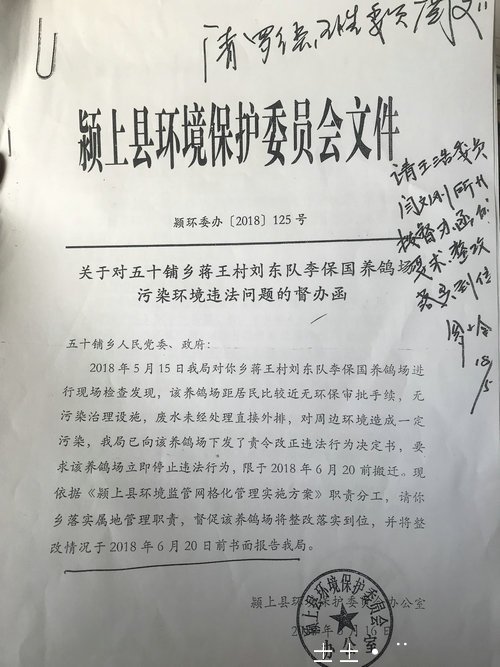 颍上县环境保护委员会文件
颍环委办〔2018〕125号
关于对五十铺乡蒋王村刘东队李保国养鸽场
污染环境违法问题的督办函
五十铺乡人民党委、政府:
2018年5月15日我局对你乡蒋王村刘东队李保国养鸽场进
行现场检查发现,该养鸽场距居民比较近无环保审批手续,无
污染治理设施,废水未经处理直接外排,对周边环境造成一定
污染,我局已向该养鸽场下发了责令改正违法行为决定书,要
求该养鸽场立即停止违法行为,限于2018年6月20前搬迁。现
依据《颍上县环境监管网格化管理实施方案》职责分工,请你
乡落实属地管理职责,督促该养鸽场将整改落实到位,并将整
改情况于2018年6月20日前书面报告我局。
颍上县环境保护委员会办公室
5月16日
颍上县环境保护委员会
办公室
请王浩委员
按督办函
要求,整改
落实到位
18/5